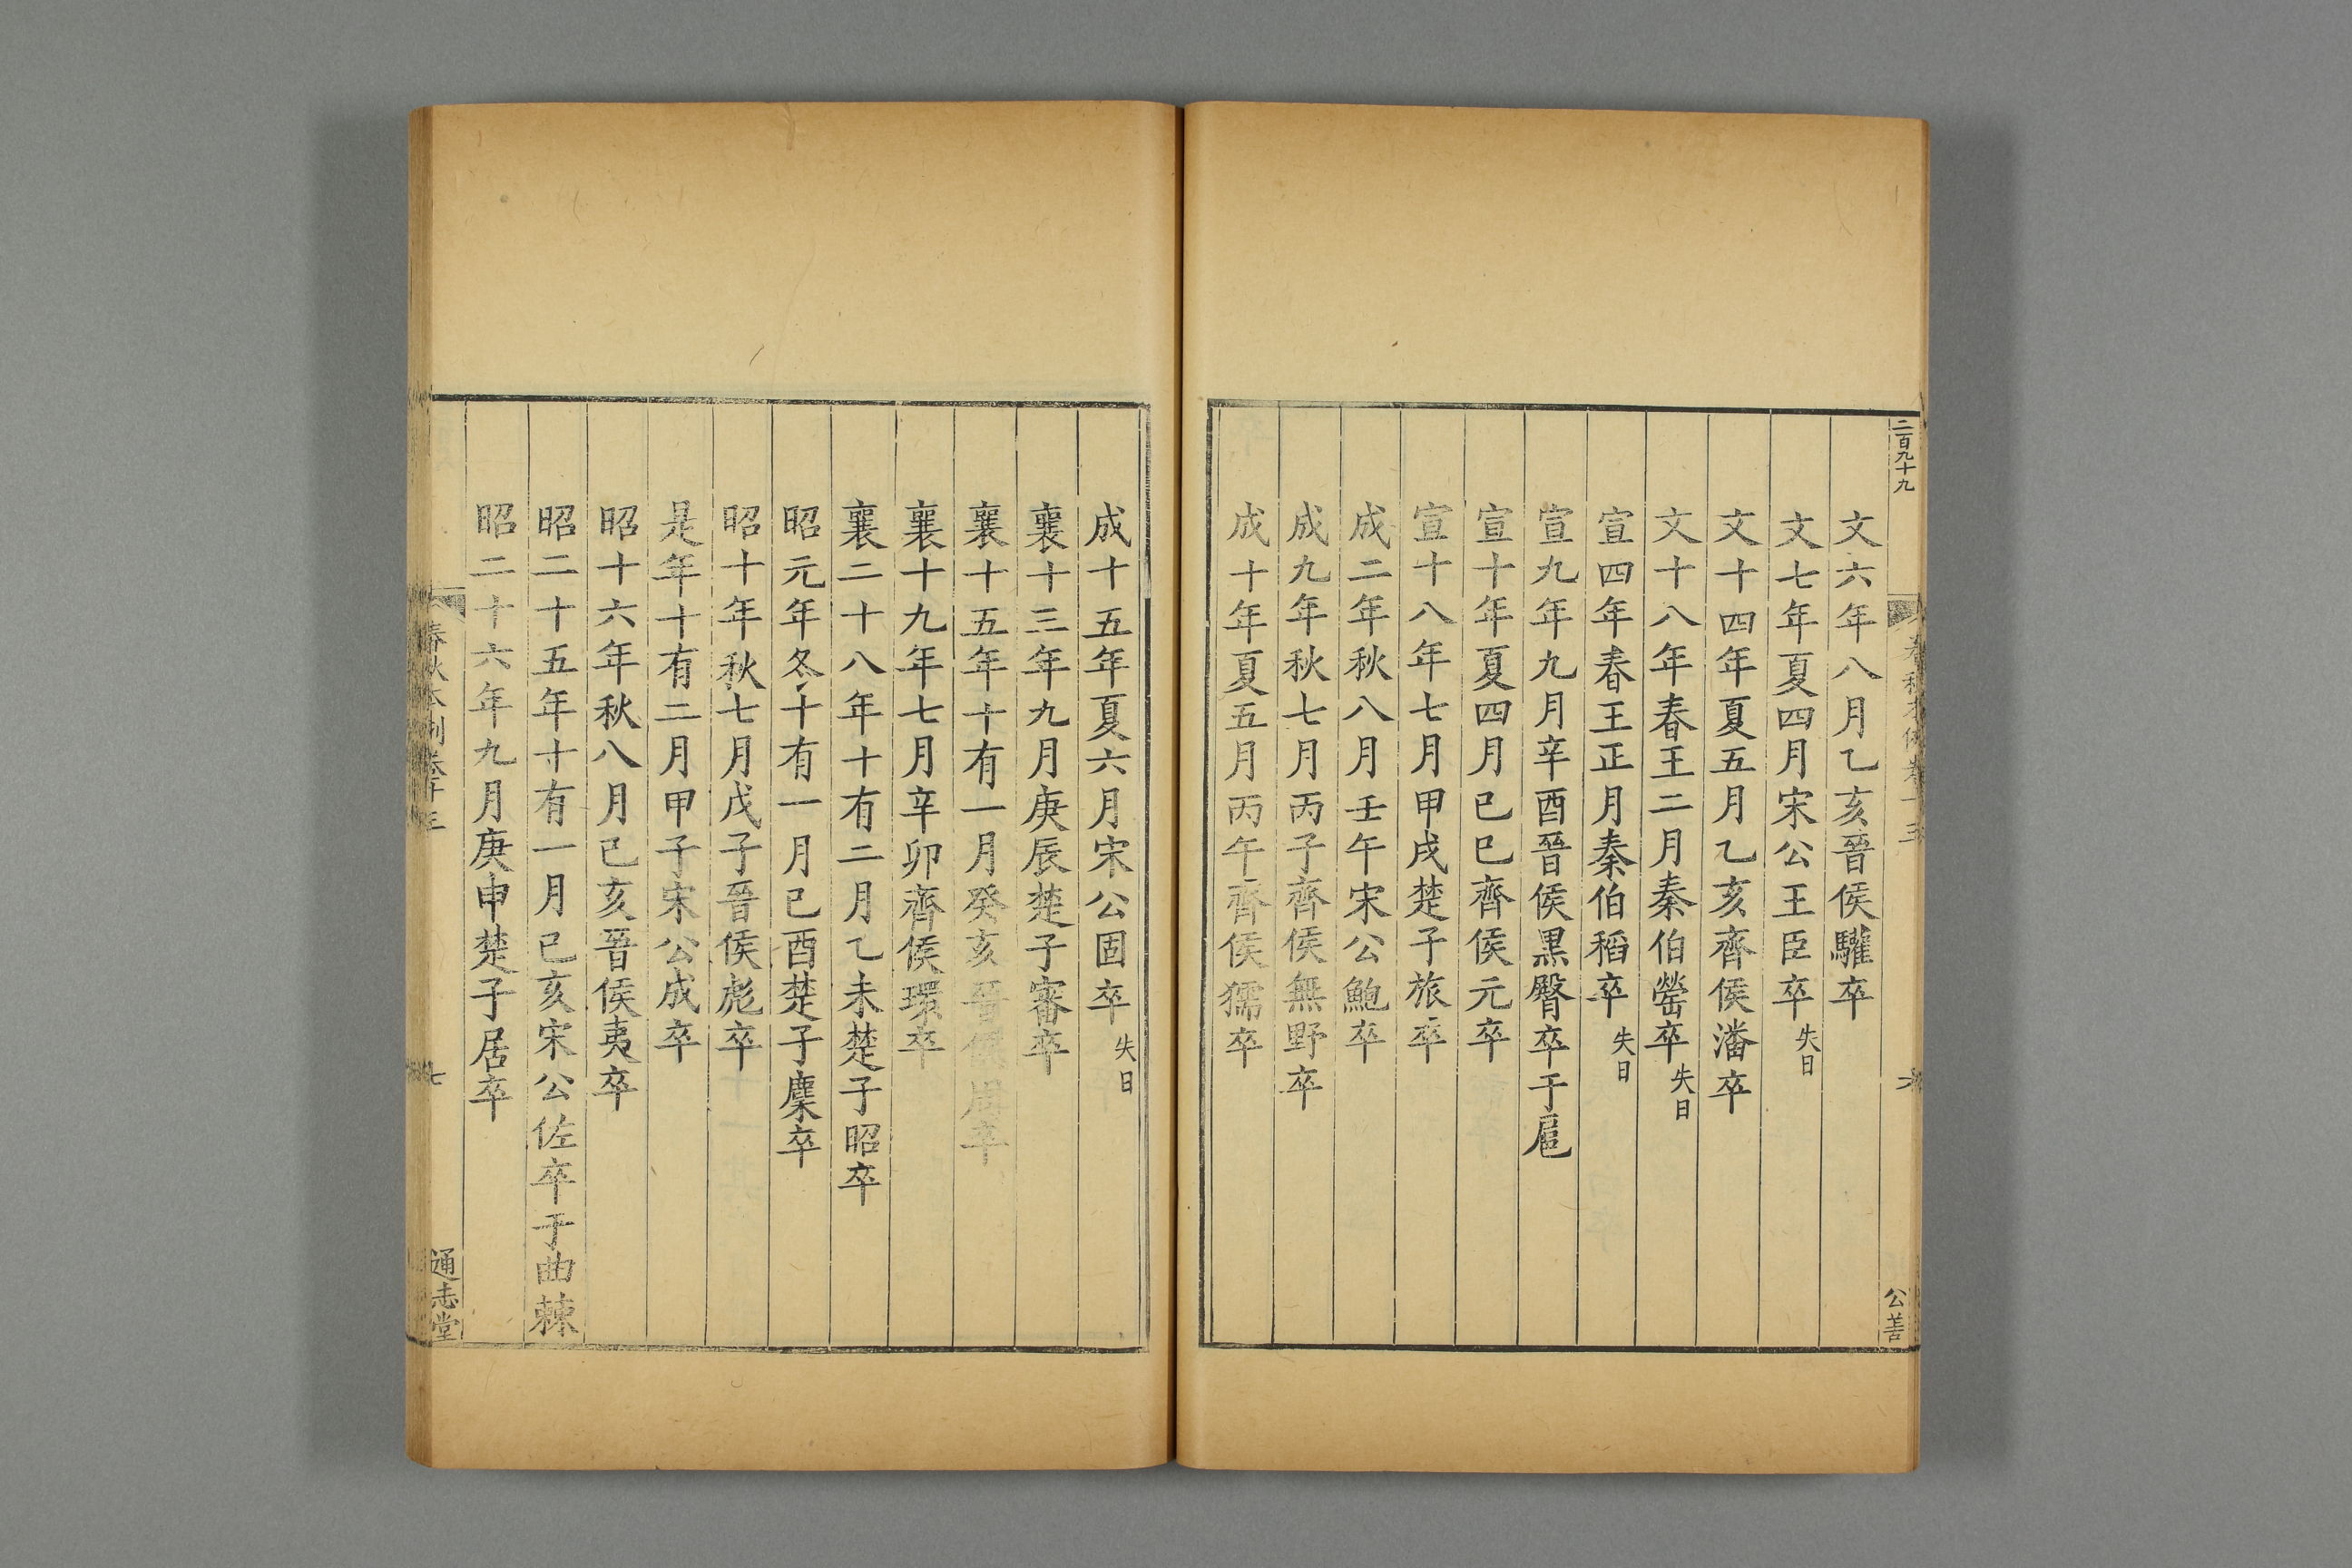 二百九十九
春秋本例卷十三
六
公善
文六年八月乙亥晉侯驩卒
文七年夏四月宋公王臣卒失日
文十四年夏五月乙亥齊侯潘卒
文十八年春王二月秦伯罃卒失日
宣四年春王正月秦伯稻卒失日
宣九年九月辛酉晉侯黒臀卒于扈
宣十年夏四月己巳齊侯元卒
宣十八年七月甲戌楚子旅卒
成二年秋八月壬午宋公鮑卒
成九年秋七月丙子齊侯無野卒
成十年夏五月丙午齊侯獳卒
成十五年夏六月宋公固卒失日
襄十三年九月庚辰楚子審卒
襄十五年十有一月癸亥晉侯周卒
襄十九年七月辛卯齊侯環卒
襄二十八年十有二月乙未楚子昭卒
昭元年冬十有一月己酉楚子麇卒
昭十年秋七月戊子晉侯彪卒
是年十有二月甲子宋公成卒
昭十六年秋八月己亥晉侯夷卒
昭二十五年十有一月己亥宋公佐卒于曲棘
昭二十六年九月庚申楚子居卒
春秋本例卷十三
七
通志堂